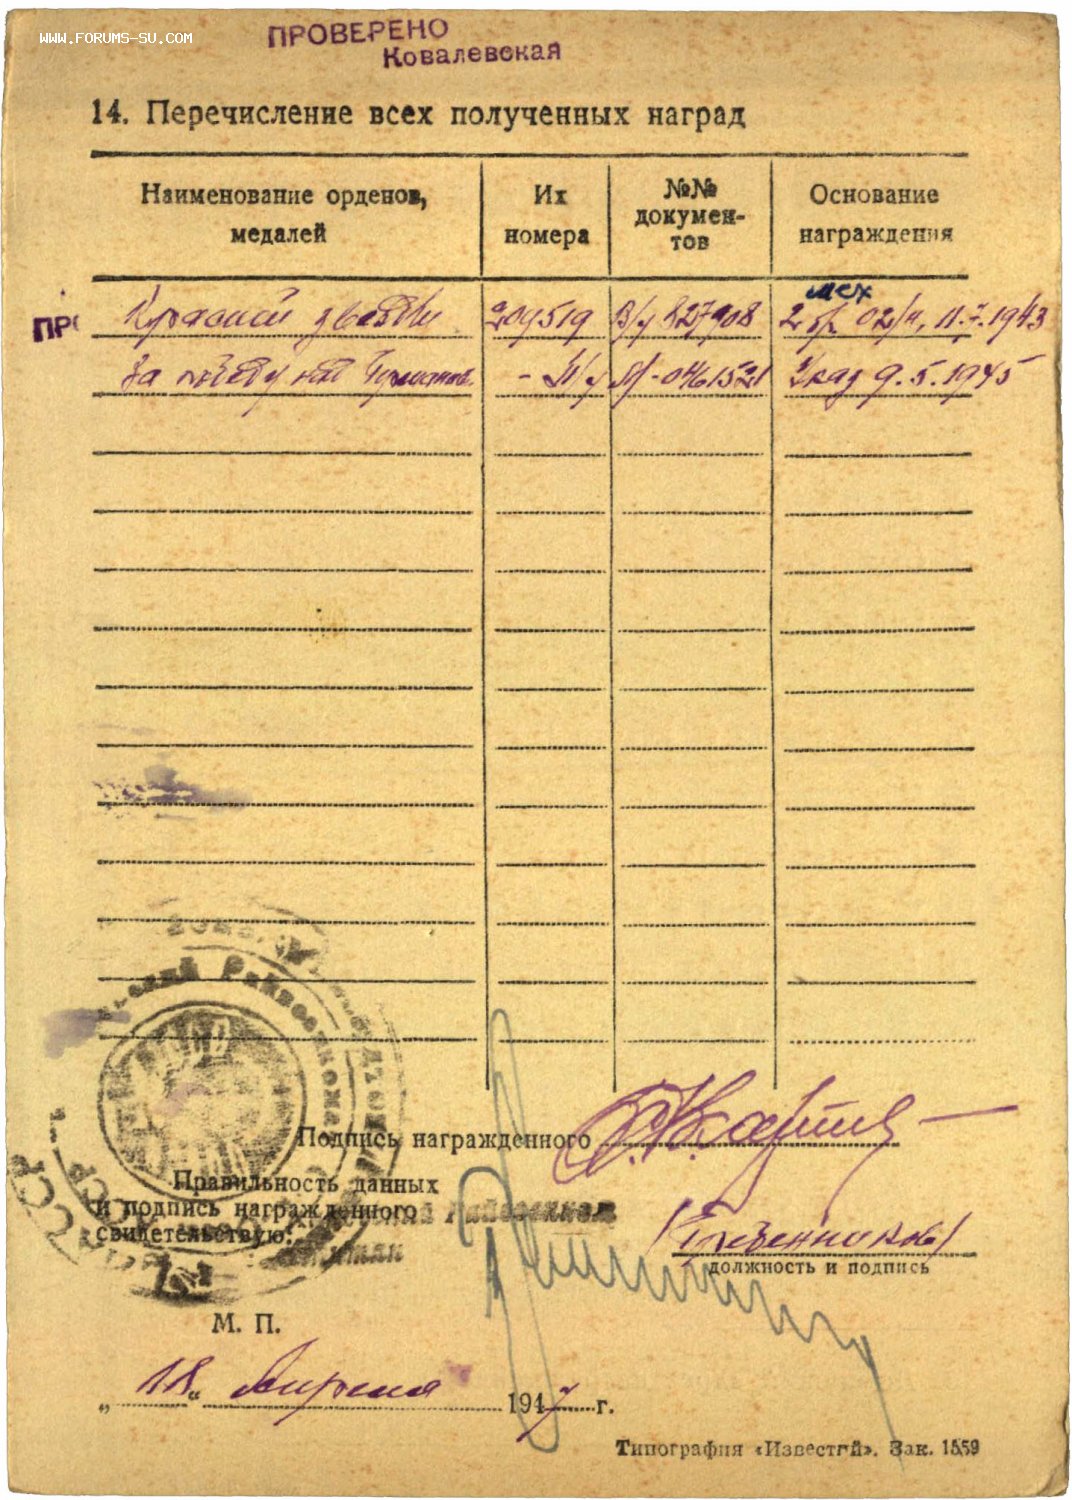 www.forums-su.com
ПРОВЕРЕНО
Ковалевская
14. Перечисление всех полученных наград
Наименование орденов, медалей
Их номера
№№ документов
Основание награждения
ПРО
Красной звезды 209519 827908 2 мех бр. 02/н, 11.7.1943
За победу над Германией - 0461521 Указ 9.5.1945
Райвоенкомат
Подпись награжденного
Правильность данных
и подпись награжденного
свидетельствую:
Райвоенком
Капитан
/Гребенников/
должность и подпись
М. П.
„18“ Апреля 1947 г.
Типография «Известий». Зак. 1559